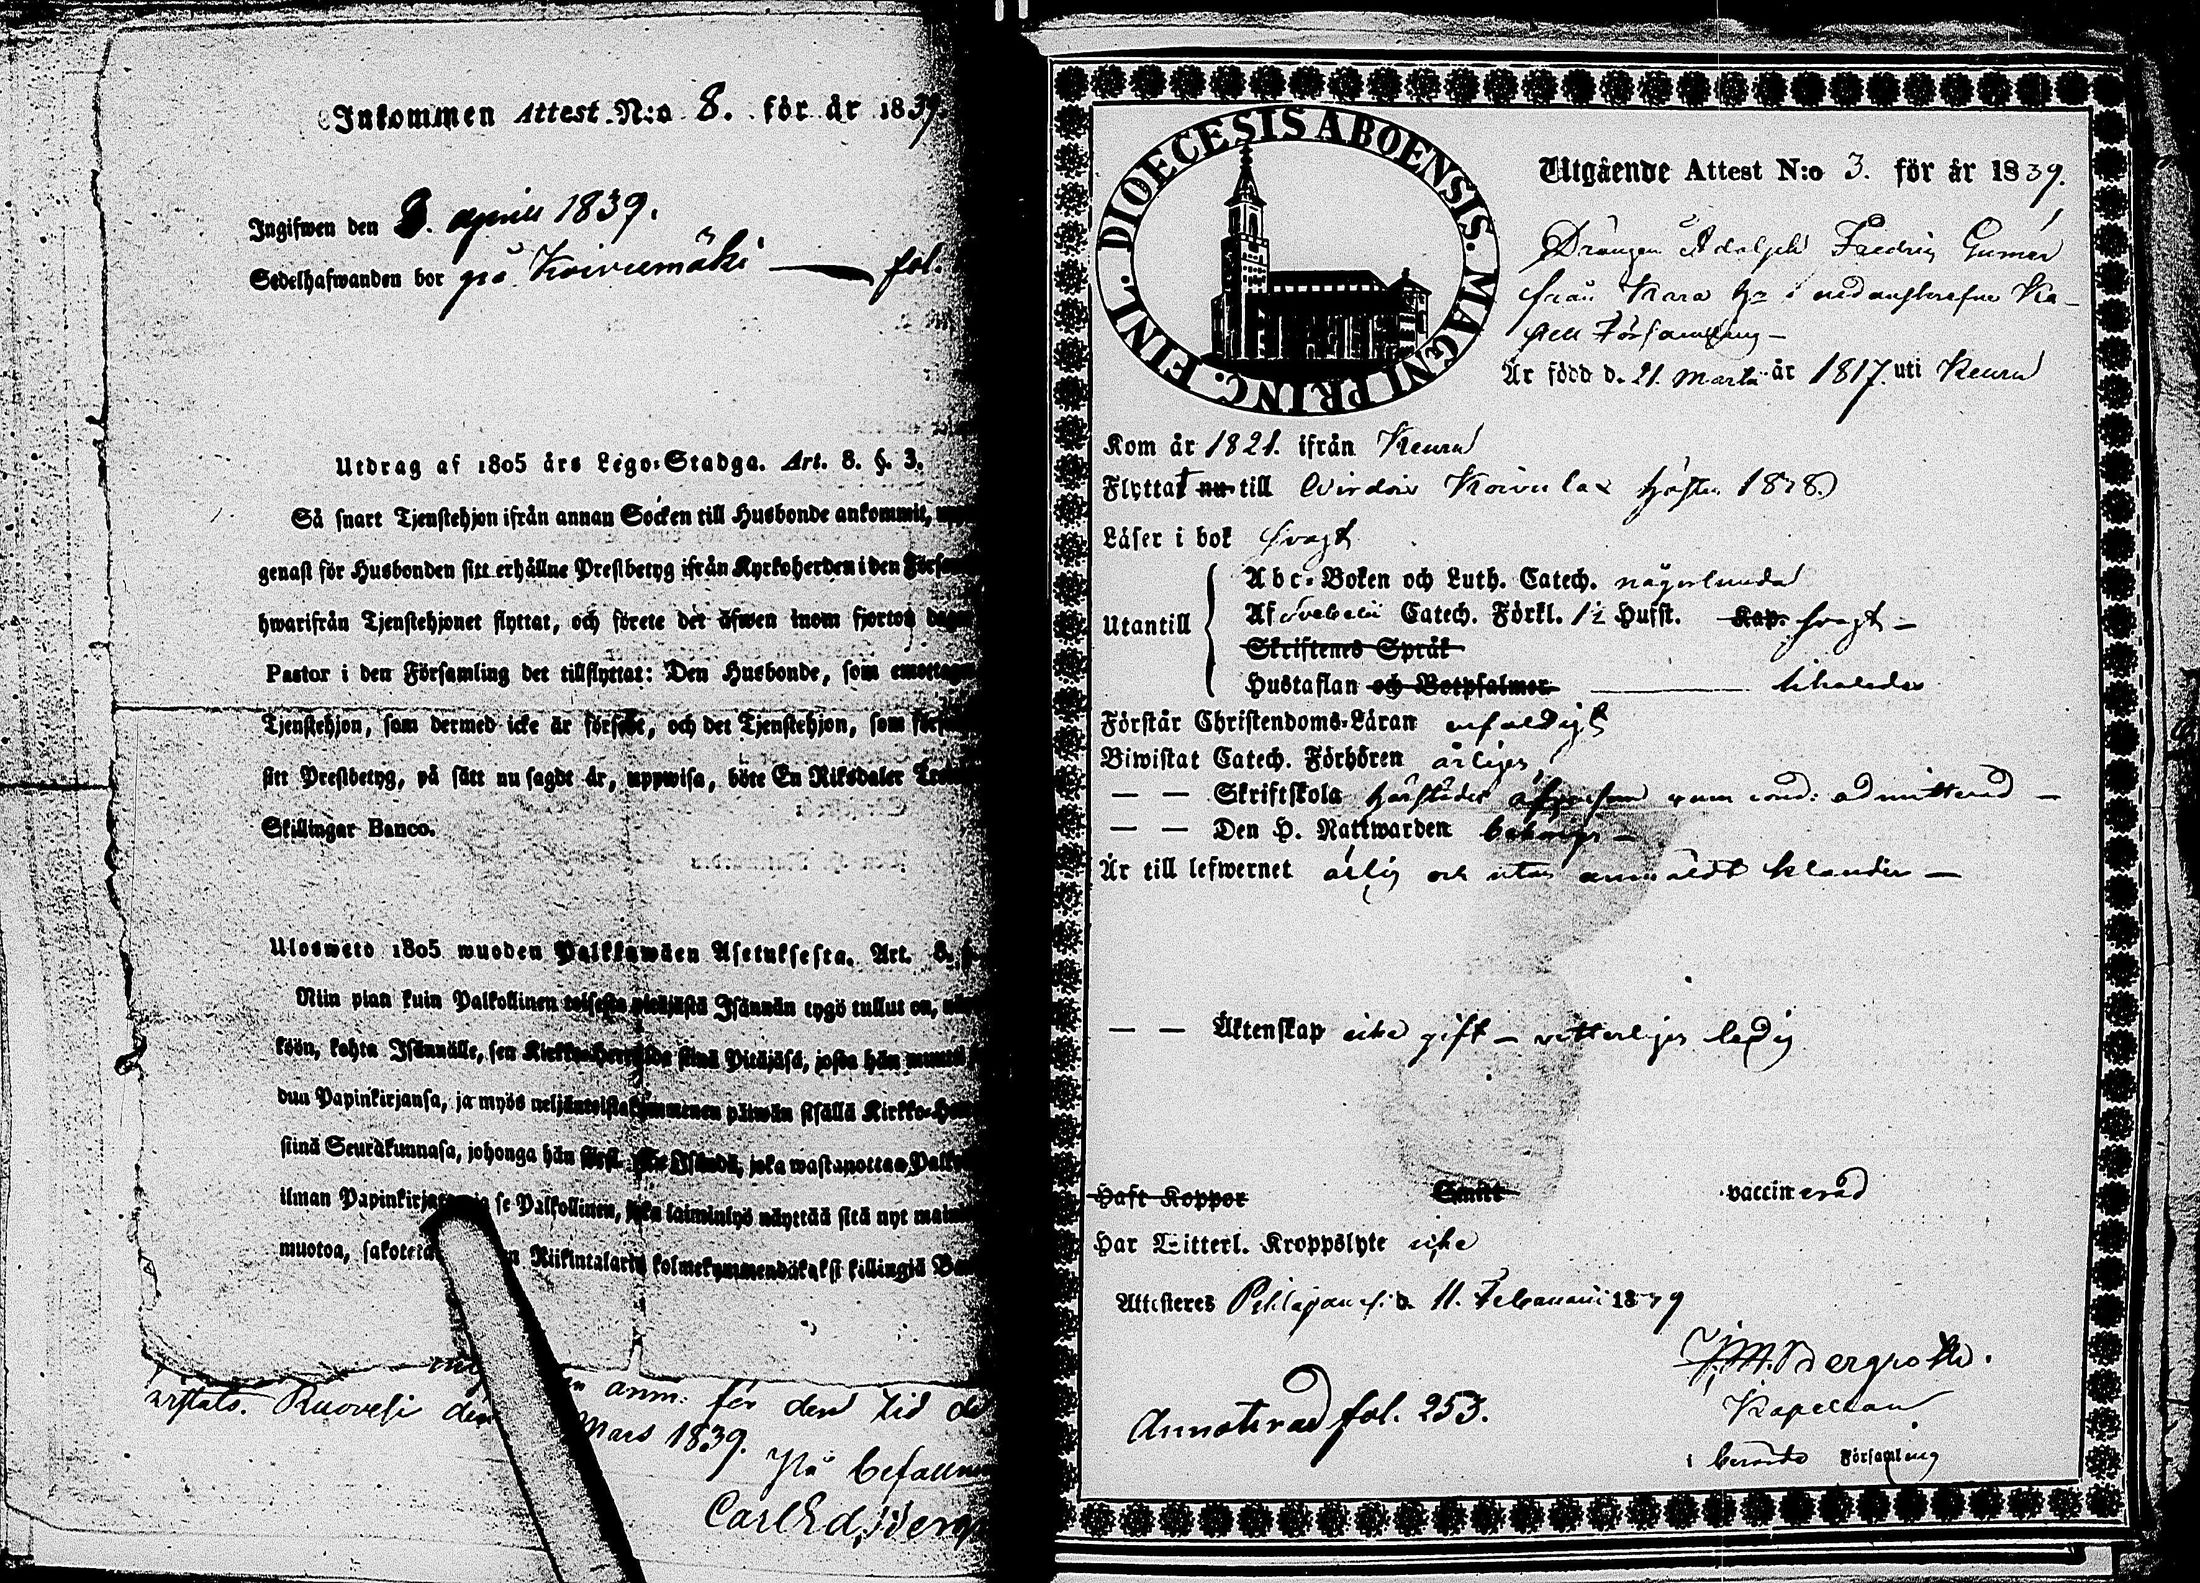 Inkommen Attest N:o 8. för år 1839.
Ingifwen den 3. aprill 1839.
Sedelhafwanden bor på Koivumäki — fol.
Utdrag af 1805 års Lego-Stadga. Art. 8. §. 3.
Så snart Tjenstehjon ifrån annan Socken till Husbonde ankommit,
genast för Husbonden sitt erhållne Prestbetyg ifrån Kyrkoherden i den
hwarifrån Tjenstehjonet flyttat, och förete det äfwen inom fjorton
Pastor i den Församling det tillflyttat: Den Husbonde, som
Tjenstehjon, som dermed icke är försedt, och det Tjenstehjon, som
sitt Prestbetyg, på sätt nu sagdt är, uppwisa, böte En Riksdaler
Skillingar Banco.
Ulosweto 1805 wuoden Palkkawäen Asetuksesta. Art. 8.
Niin pian kuin Palkollinen toisesta pitäjästä Isännän tygö tullut on,
köön, kohta Isännälle, sen Kirkko-Herralda siinä Pitäjäsä, josta hän
dun Papinkirjansa, ja myös neljäntoistakymmenen päiwän sisällä
siinä Seurakunnasa, johonga hän joka wastanottaa
ilman se Palkollinen, joka laiminlyö näyttää sitä nyt
muotoa, Riikintalarin kolmekymmendäkaksi killingiä
anm: för den tid
Ruovesi den Mars 1839.
På befallning
Carl Ed.
DIOECESIS ABOENSIS. MAGNI PRINC. FINL.
Utgående Attest N:o 3. för år 1839.
Drängen Adolph Fredric Gumér
från Kara i nedanskrefne Ka-
pell Församling —
Är född d. 21. Martii år 1817. uti Keuru
Kom år 1821. ifrån Keuru
Flyttat nu till Wirdois Koivulax hösten 1838.
Läser i bok svagt
Utantill
Abc-Boken och Luth. Catech. någorlunda
Af Svebelii Catech. Förkl. 1½ Hufst. Kap. svagt —
Skriftenes Språk
Hustaflan och Botpsalmer — likaledes
Förstår Christendoms-Läran enfaldigt
Biwistat Catech. Förhören årligen
— — Skriftskola härstädes cond: admitterad —
— — Den H. Nattwarden begångit —
Är till lefwernet ärlig och utan anmäldt klander —
— — Äktenskap icke gift — vitterligen ledig
Haft Koppor Smitt vaccinerad
Har Witterl. Kroppslyte icke
Attesteres Pihlajavesi d. 11. Februarii 1839
J.M. Bergroth.
Kapellan
i berörde Församling
Annoterad fol. 253.